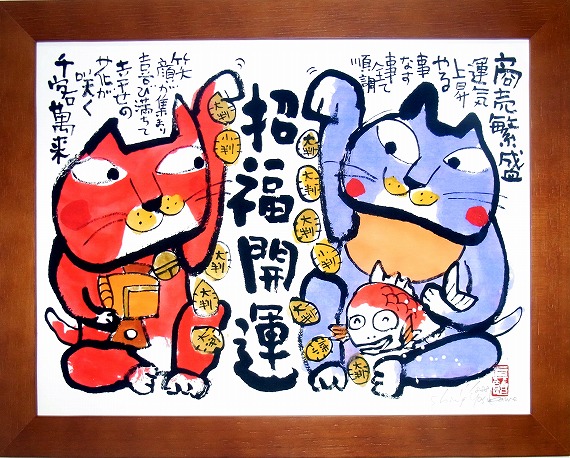 商売繁盛
運気
上昇
やる
事
なす
事
全て
順調
招福開運
笑
顔が集まり
喜び満ちて
幸せの
花が
咲く
千客萬来
大判
小判
大判
小判
大判
大判
大判
大判
小判
大判
大判